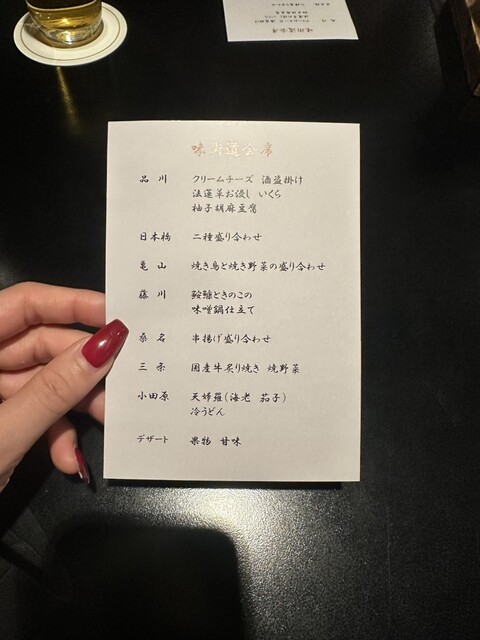 味街道会席
品川 クリームチーズ 酒盗掛け
法蓮草お浸し いくら
柚子胡麻豆腐
日本橋 二種盛り合わせ
亀山 焼き鳥と焼き野菜の盛り合わせ
藤川 鮟鱇ときのこの
味噌鍋仕立て
桑名 串揚げ盛り合わせ
三条 国産牛炙り焼き 焼野菜
小田原 天婦羅(海老 茄子)
冷うどん
デザート 果物 甘味